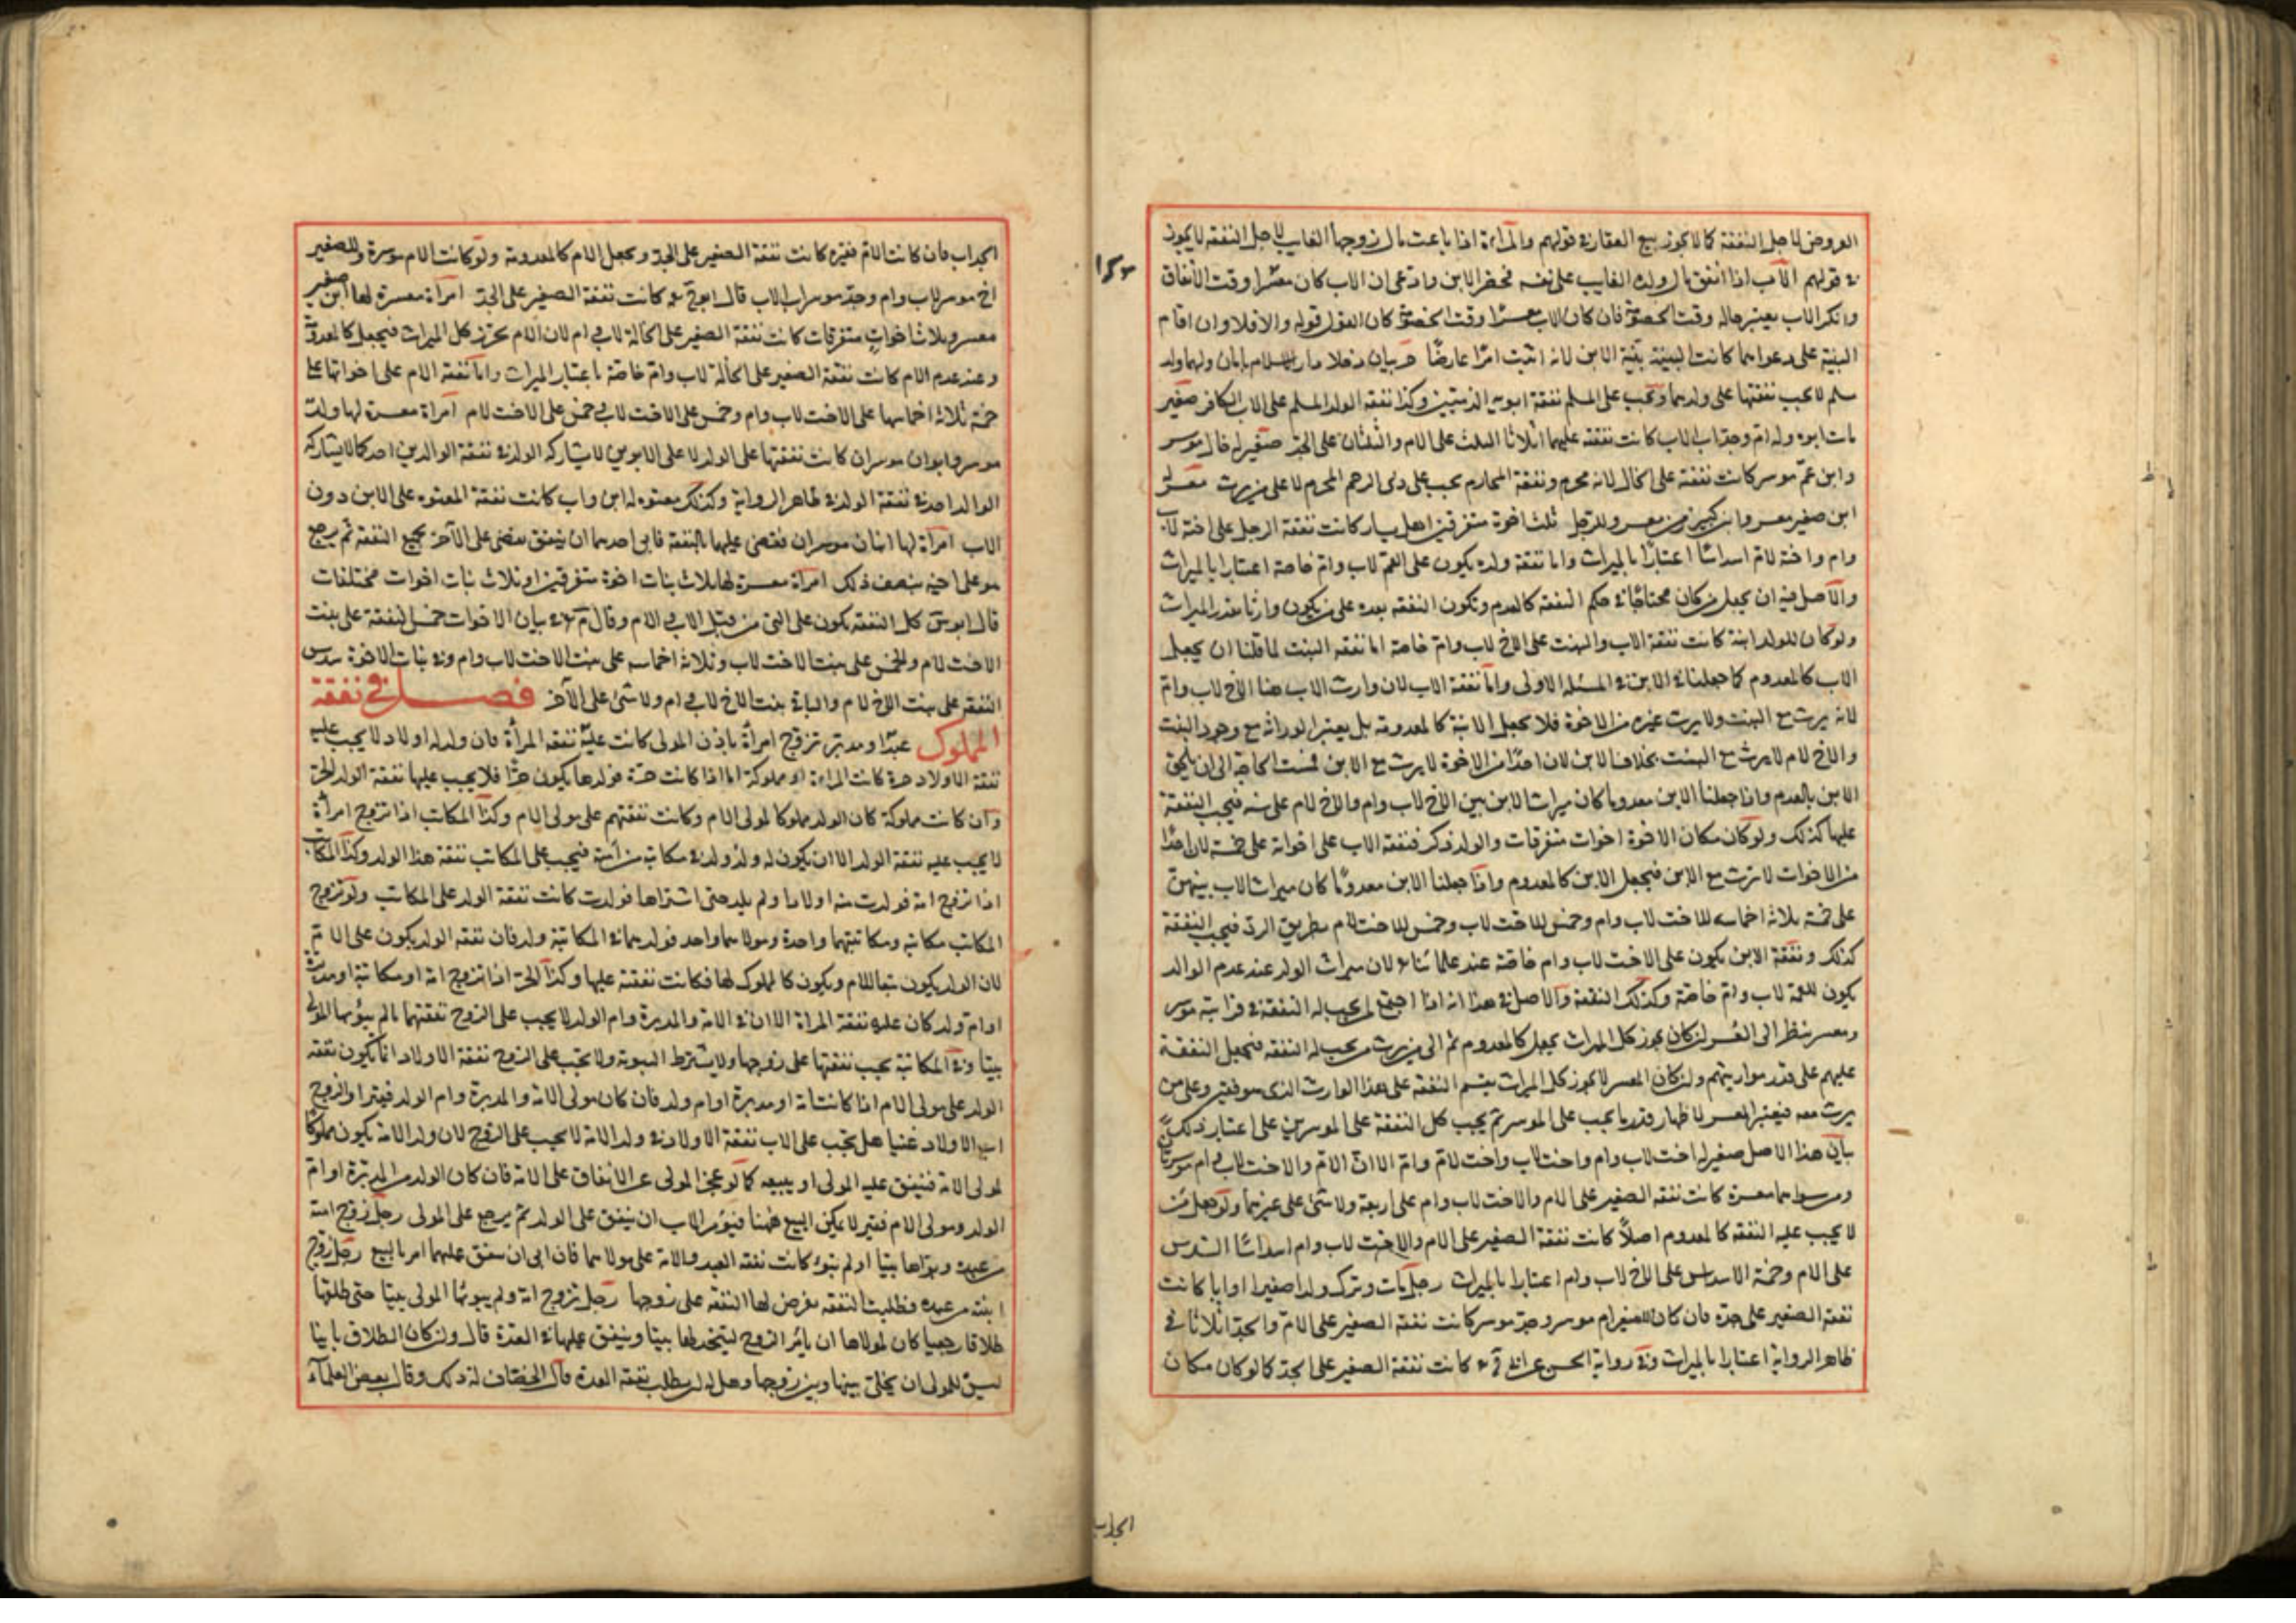 العروض لاجل النفقة كما لا يجوز بيع العقار في قولهم والمراة اذا باعت مال زوجها الغايب لاجل النفقة لا يجوز
في قولهم الاب اذا انفق مال ولده الغايب على نفسه فحضر الابن وادعى ان الاب كان معسرا وقت الانفاق
وانكر الاب يعتبر حاله وقت الخصومة فان كان الاب معسرا وقت الخصومة كان القول قوله والا فلا وان اقام
البينة على دعواهما كانت البينة بينة الابن لانه اثبت امرا عارضا حربيان دخلا دار الاسلام بامان ولهما ولد
مسلم لا يجب نفقتها على ولدهما ويجب على المسلم نفقة ابويه الذميين وكذا نفقة الولد المسلم على الاب الكافر صغير
مات ابوه وله ام وجد اب الاب كانت نفقته عليهما اثلاثا الثلث على الام والثلثان على الجد صغير له خال موسر
وابن عم موسر كانت نفقته على الخال لانه محرم ونفقة المحارم يجب على ذي الرحم المحرم لا على من يرث معسر له
ابن صغير معسر وابن كبير زمن معسر وللرجل ثلث اخوة متفرقين اهل يسار كانت نفقة الرجل على اخيه لاب
وام واخيه لام اسداسا اعتبارا بالميراث واما نفقة ولده يكون على العم لاب وام خاصة اعتبارا بالميراث
والاصل فيه ان يجعل من كان محتاجا في حكم النفقة كالعدم وتكون النفقة بعده على من يكون وارثا بقدر الميراث
ولو كان للولد ابنة كانت نفقة الاب والبنت على الاخ لاب وام خاصة اما نفقة البنت لما قلنا ان يجعل
الاب كالمعدوم كما جعلناه في الابن في المسئلة الاولى واما نفقة الاب لان وارث الاب هنا الاخ لاب وام
لانه يرث مع البنت ولا يرث غيره من الاخوة فلا يجعل الابنة كالمعدومة بل يعتبر الوراثة مع وجود البنت
والاخ لام لا يرث مع البنت بخلاف الابن لان احدا من الاخوة لا يرث مع الابن فمست الحاجة الى ان يلحق
الابن بالعدم واذا جعلنا الابن معدوما كان ميراث الابن بين الاخ لاب وام والاخ لام على ستة فيجب النفقة
عليهما كذلك ولو كان مكان الاخوة اخوات متفرقات والولد ذكر فنفقة الاب على اخواته على خمسة لان احدا
من الاخوات لا ترث مع الابن فيجعل الابن كالمعدوم واذا جعلنا الابن معدوما كان ميراث الاب بينهن
على خمسة ثلاثة اخماسه للاخت لاب وام وخمس للاخت لاب وخمس للاخت لام بطريق الرد فيجب النفقة
كذلك ونفقة الابن يكون على الاخت لاب وام خاصة عند علمائنا لان ميراث الولد عند عدم الوالد
يكون للعمة لاب وام خاصة وكذلك النفقة والاصل في هذا انه اذا اجتمع لمن يجب له النفقة في قرابته موسر
ومعسر ينظر الى المعسر ان كان يحوز كل الميراث يجعل كالمعدوم ثم الى من يرث من يجب له النفقة فيجعل النفقة
عليهم على قدر مواريثهم وان كان المعسر لا يحوز كل الميراث يقسم النفقة على هذا الوارث الذي هو فقير وعلى من
يرث معه فيعتبر المعسر لاظهار قدر ما يجب على الموسر ثم يجب كل النفقة على الموسرين على اعتبار ذلك
بيان هذا الاصل صغير له اخت لاب وام واخت لاب واخت لام وام الا ان الام والاخت لاب وام موسرتان
ومن سواهما معسرة كانت نفقة الصغير على الام والاخت لاب وام على اربعة ولا شئ على غيرهما ولو جعل من
لا يجب عليه النفقة كالمعدوم اصلا كانت نفقة الصغير على الام والاخت لاب وام اسداسا السدس
على الام وخمسة الاسداس على الاخ لاب وام اعتبارا بالميراث رجل مات وترك ولدا صغيرا وابا كانت
نفقة الصغير على جده فان كان للصغير ام موسرة وجد موسر كانت نفقة الصغير على الام والجد اثلاثا في
ظاهر الرواية اعتبارا بالميراث وفي رواية الحسن عن ابي ح كانت نفقة الصغير على الجد كما لو كان مكان
الجد اب
١٥٣
الجد اب فان كانت الام فقيرة كانت نفقة الصغير على الجد ويجعل الام كالمعدومة ولو كانت الام موسرة وللصغير
اخ موسر لاب وام وجد موسر اب الاب قال ابو ح كانت نفقة الصغير على الجد امراة معسرة لها ابن صغير
معسر وثلاث اخوات متفرقات كانت نفقة الصغير على الخالة لاب وام لان الام تحرز كل الميراث فيجعل كالمعدومة
وعند عدم الام كانت نفقة الصغير على الخالة لاب وام خاصة باعتبار الميراث واما نفقة الام على اخواتها على
خمسة ثلاثة اخماسها على الاخت لاب وام وخمس على الاخت لاب وخمس على الاخت لام امراة معسرة لها ولد
موسر وابوان موسران كانت نفقتها على الولد لا على الابوين لا يشارك الولد في نفقة الوالدين احد كما لا يشارك
الوالد احد في نفقة الولد في ظاهر الرواية وكذلك معتوه له ابن واب كانت نفقة المعتوه على الابن دون
الاب امراة لها ابنان موسران فقضى عليهما بالنفقة فابى احدهما ان ينفق يقضى على الاخر بجميع النفقة ثم يرجع
هو على اخيه بنصف ذلك امراة معسرة لها ثلاث بنات اخوة متفرقين او ثلاث بنات اخوات مختلفات
قال ابو س كل النفقة يكون على التي من قبل الاب والام وقال م في بيان الاخوات خمس النفقة على بنت
الاخت لام والخمس على بنت الاخت لاب وثلاثة اخماسه على بنت الاخت لاب وام وفي بنات الاخوة سدس
النفقة على بنت الاخ لام والباقي بنت الاخ لاب وام ولا شئ على الاخر فصل في نفقة
المملوك عبد او مدبر تزوج امراة باذن المولى كانت عليه نفقة المراة فان ولد له اولاد لا يجب عليه
نفقة الاولاد حرة كانت المراة او مملوكة اما اذا كانت حرة فولدها يكون حرا فلا يجب عليها نفقة الولد الحر
وان كانت مملوكة كان الولد مملوكا لمولى الام وكانت نفقتهم على مولى الام وكذا المكاتب اذا تزوج امراة
لا يجب عليه نفقة الولد الا ان يكون له ولد ولد في مكاتبته من امته فيجب على المكاتب نفقة هذا الولد وكذا المكاتب
اذا تزوج امة فولدت منه اولادا ولم يلد حتى اشتراها فولدت كانت نفقة الولد على المكاتب ولو تزوج
المكاتب مكاتبة ومكاتبتهما واحدة ومولاهما واحد فولد بينهما في المكاتبة ولد فان نفقة الولد يكون على الام
لان الولد يكون تبعا للام ويكون كالمملوك لها فكانت نفقته عليها وكذا الحر اذا تزوج امة او مكاتبة او مدبرة
او ام ولد كان عليه نفقة المراة الا ان في الامة والمدبرة وام الولد لا يجب على الزوج نفقتهما ما لم يبوئهما المولى
بيتا وفي المكاتبة يجب نفقتها على زوجها ولا يشترط التبوية ولا يجب على الزوج نفقة الاولاد انما يكون نفقة
الولد على مولى الام اذا كانت امة او مدبرة او ام ولد فان كان مولى الامة والمدبرة وام الولد فقيرا والزوج
اب الاولاد غنيا هل يجب على الاب نفقة الاولاد في ولد الامة لا يجب على الزوج لان ولد الامة يكون مملوكا
لمولى الامة فينفق عليه المولى او يبيعه كما لو عجز المولى عن الانفاق على الامة فان كان الولد من المدبرة او ام
الولد ومولى الام فقير لا يمكن البيع ههنا فيؤمر الاب ان ينفق على الولد ثم يرجع على المولى رجل زوج امته
من عبده وبوأها بيتا او لم يبوء كانت نفقة العبد والامة على مولاهما فان ابى ان ينفق عليهما امر بالبيع رجل زوج
ابنته من عبده فطلبت النفقة يفرض لها النفقة على زوجها رجل تزوج امة ولم يبوئها المولى بيتا حتى طلقها
طلاقا رجعيا كان لمولاها ان يامر الزوج ليتخذ لها بيتا وينفق عليها في العدة قال وان كان الطلاق باينا
ليس للمولى ان يخلي بينها وبين زوجها وهل له ان يطلب نفقة العدة قال الخصاف له ذلك وقال بعض العلماء